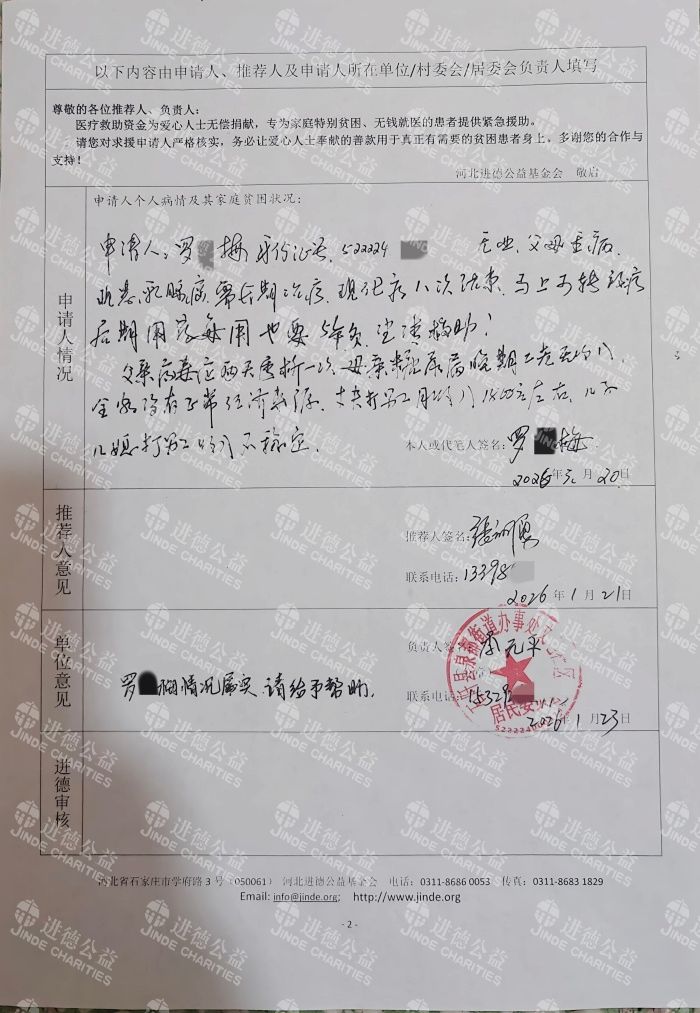 以下内容由申请人、推荐人及申请人所在单位/村委会/居委会负责人填写
尊敬的各位推荐人、负责人:
医疗救助资金为爱心人士无偿捐献，专为家庭特别贫困、无钱就医的患者提供紧急援助。
请您对求援申请人严格核实，务必让爱心人士奉献的善款用于真正有需要的贫困患者身上。多谢您的合作与
支持！
河北进德公益基金会 敬启
申请人情况
申请人个人病情及其家庭贫困状况:
申请人:罗 梅 身份证号,522224 无业,父母重病.
现患乳腺癌,需长期治疗,现化疗八次结束,马上要转放疗
后期用药费用也要
救助!
父亲病毒症两天透析一次,母亲糖尿病晚期
全家没有正常经济来源,丈夫打零工月收入1800元左右,儿子
儿媳打零工收入不稳定.
本人或代笔人签名: 罗 梅
2026年元月20日
推荐人意见
推荐人签名:
联系电话:13398
2026年1月21日
单位意见
罗 梅情况属实,请给予帮助.
负责人签
联系电话:15329
2026年1月23日
街道办事处
居民委
进德审核
河北省石家庄市学府路3号 (050061) 河北进德公益基金会 电话: 0311-8686 0053 传真: 0311-8683 1829
Email: info@jinde.org; http://www.jinde.org
- 2 -
进德公益
JINDE CHARITIES